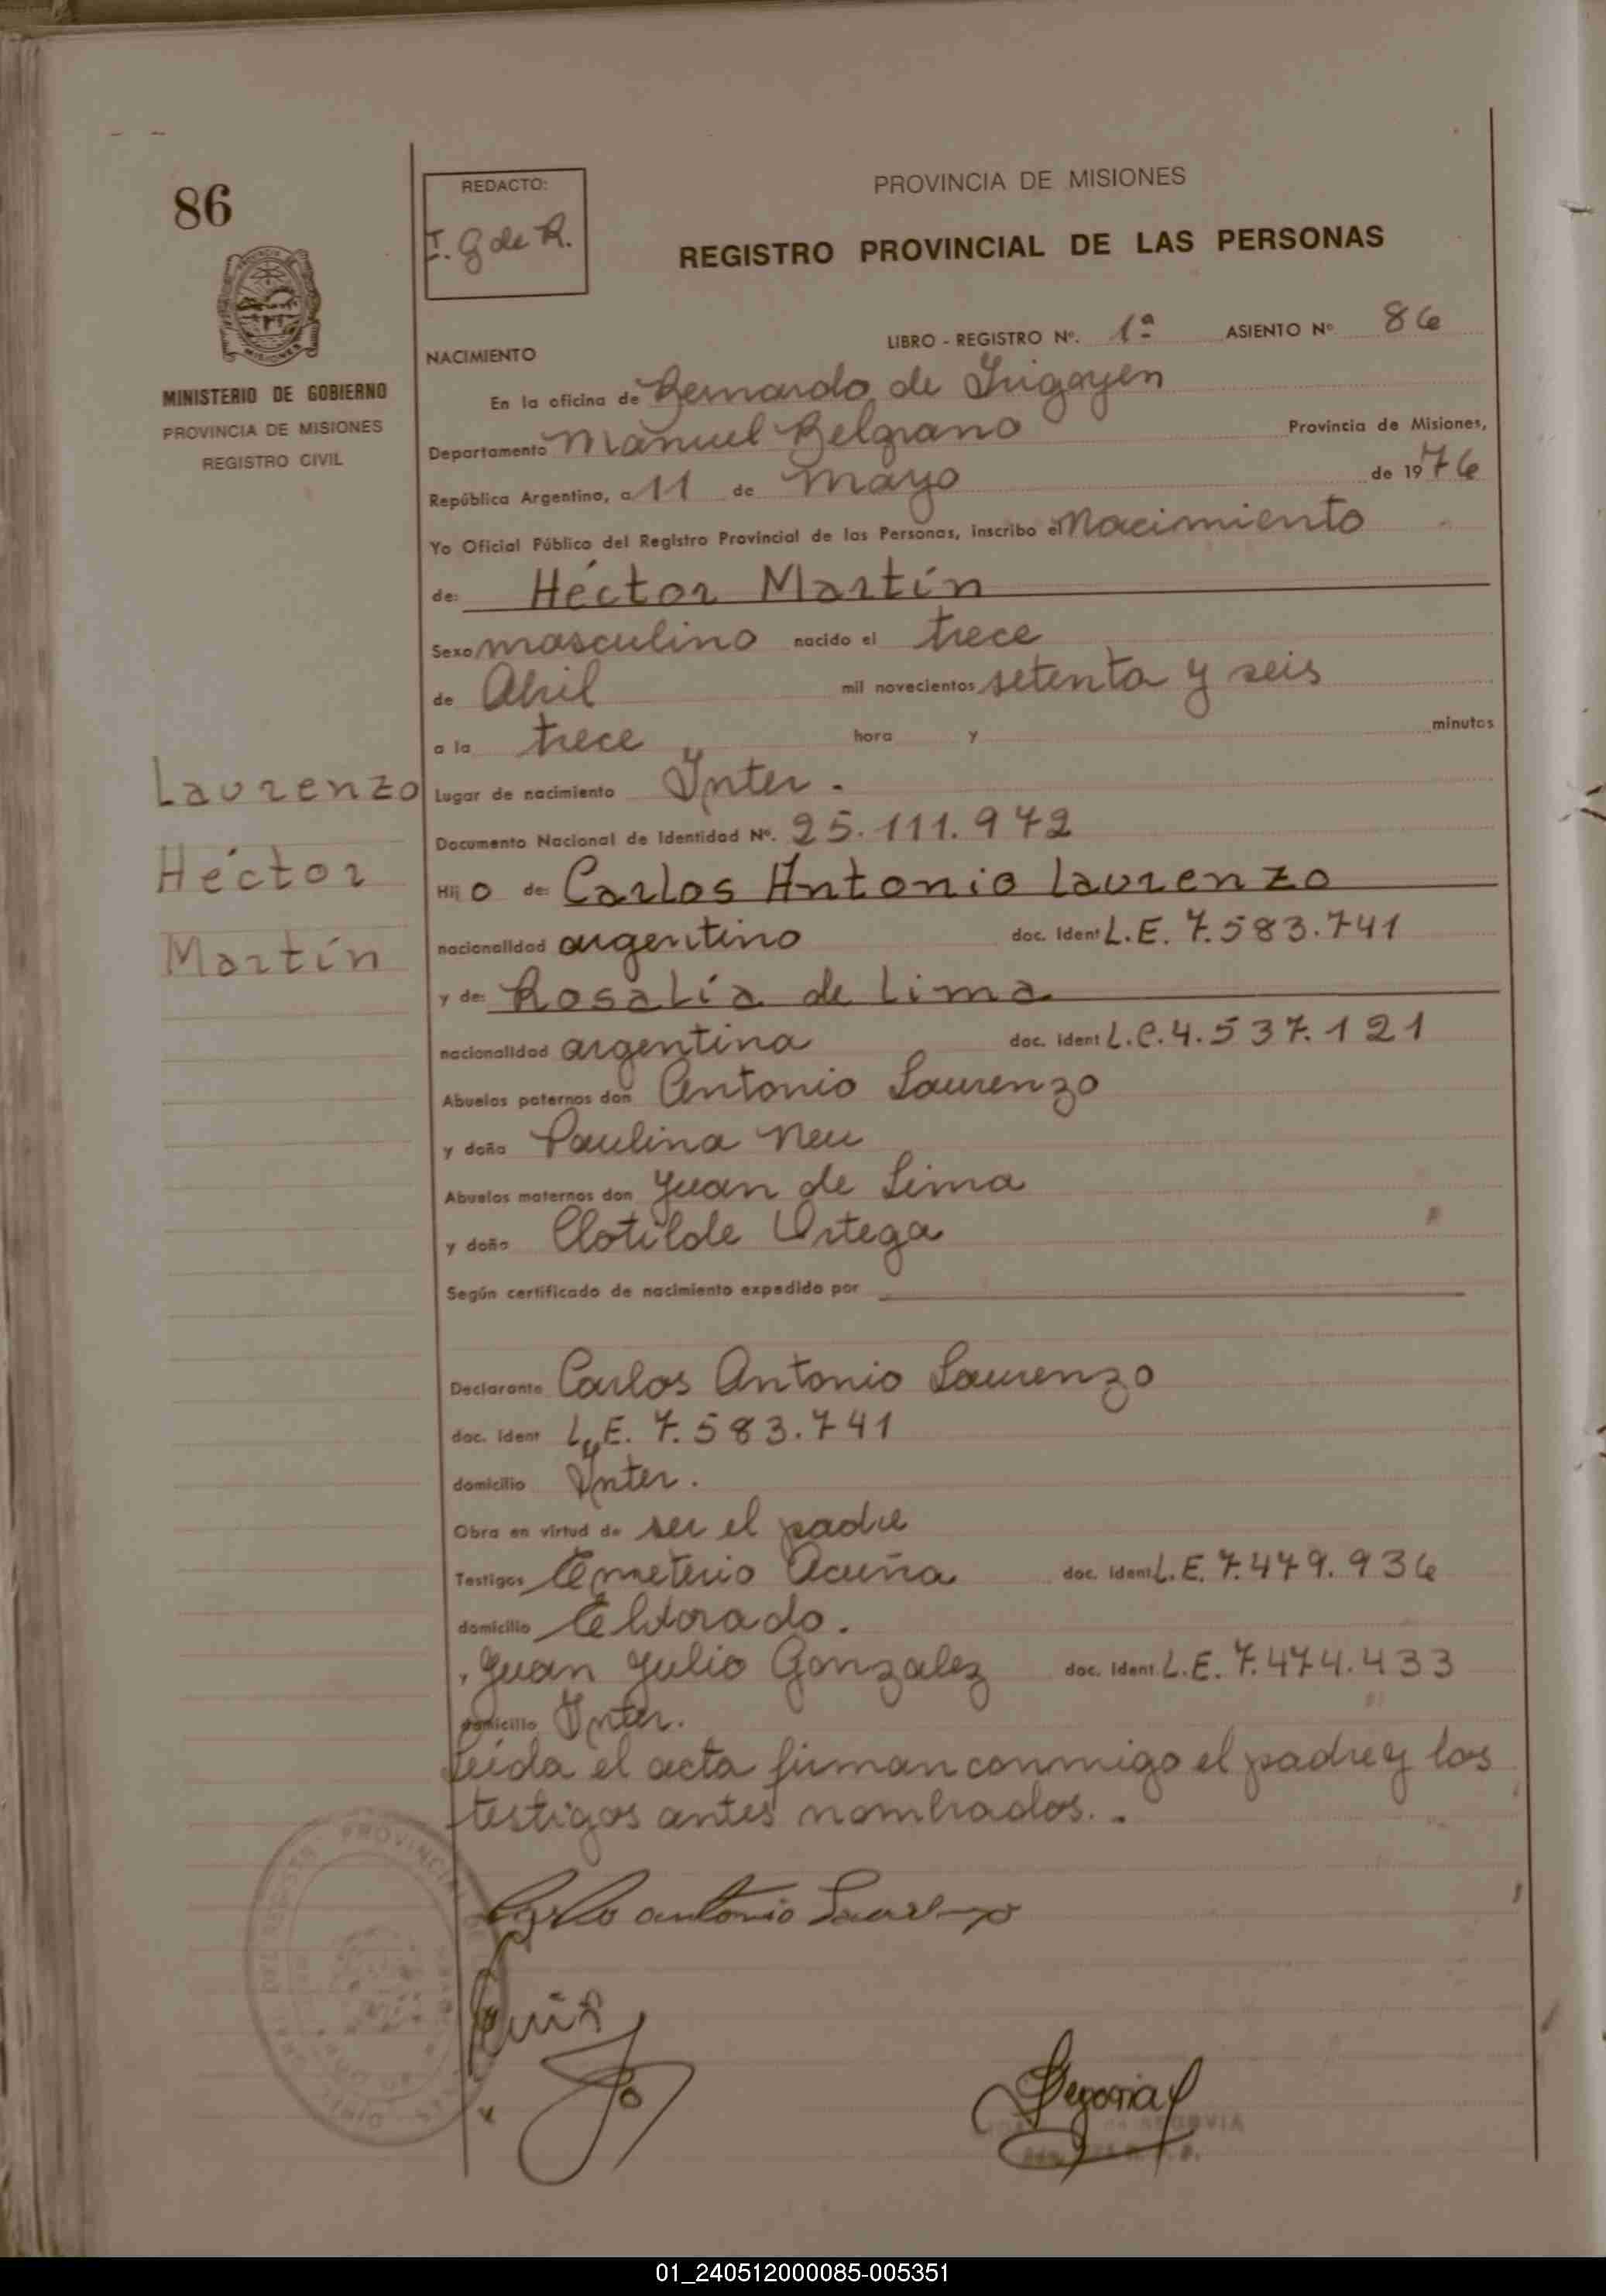 86
REDACTO:
I. G de R.
PROVINCIA DE MISIONES
REGISTRO PROVINCIAL DE LAS PERSONAS
MINISTERIO DE GOBIERNO
PROVINCIA DE MISIONES
REGISTRO CIVIL
LIBRO - REGISTRO Nº. 1ª ASIENTO Nº 86
NACIMIENTO
En la oficina de Bernardo de Irigoyen
Departamento Manuel Belgrano Provincia de Misiones,
República Argentina, a 11 de Mayo de 1976
Yo Oficial Público del Registro Provincial de las Personas, inscribo el Nacimiento
de: Héctor Martín
Sexo masculino nacido el trece
de Abril mil novecientos setenta y seis
a la trece hora y minutos
Laurenzo
Héctor
Martín
Lugar de nacimiento Inter.
Documento Nacional de Identidad Nº. 25.111.972
Hijo de: Carlos Antonio Laurenzo
nacionalidad argentino doc. Ident L.E. 7.583.741
y de: Rosalía de Lima
nacionalidad argentina doc. Ident L.C. 4.537.121
Abuelos paternos don Antonio Laurenzo
y doña Paulina Neu
Abuelos maternos don Juan de Lima
y doña Clotilde Ortega
Según certificado de nacimiento expedido por
Declarante Carlos Antonio Laurenzo
doc. Ident L.E. 7.583.741
domicilio Inter.
Obra en virtud de ser el padre
Testigos Emeterio Acuña doc. Ident L.E. 7.479.936
domicilio Eldorado.
, Juan Julio Gonzalez doc. Ident. L.E. 7.474.433
domicilio Inter.
Leida el acta firman conmigo el padre y los
testigos antes nombrados. .
Carlo antonio Laurenzo
01_240512000085-005351